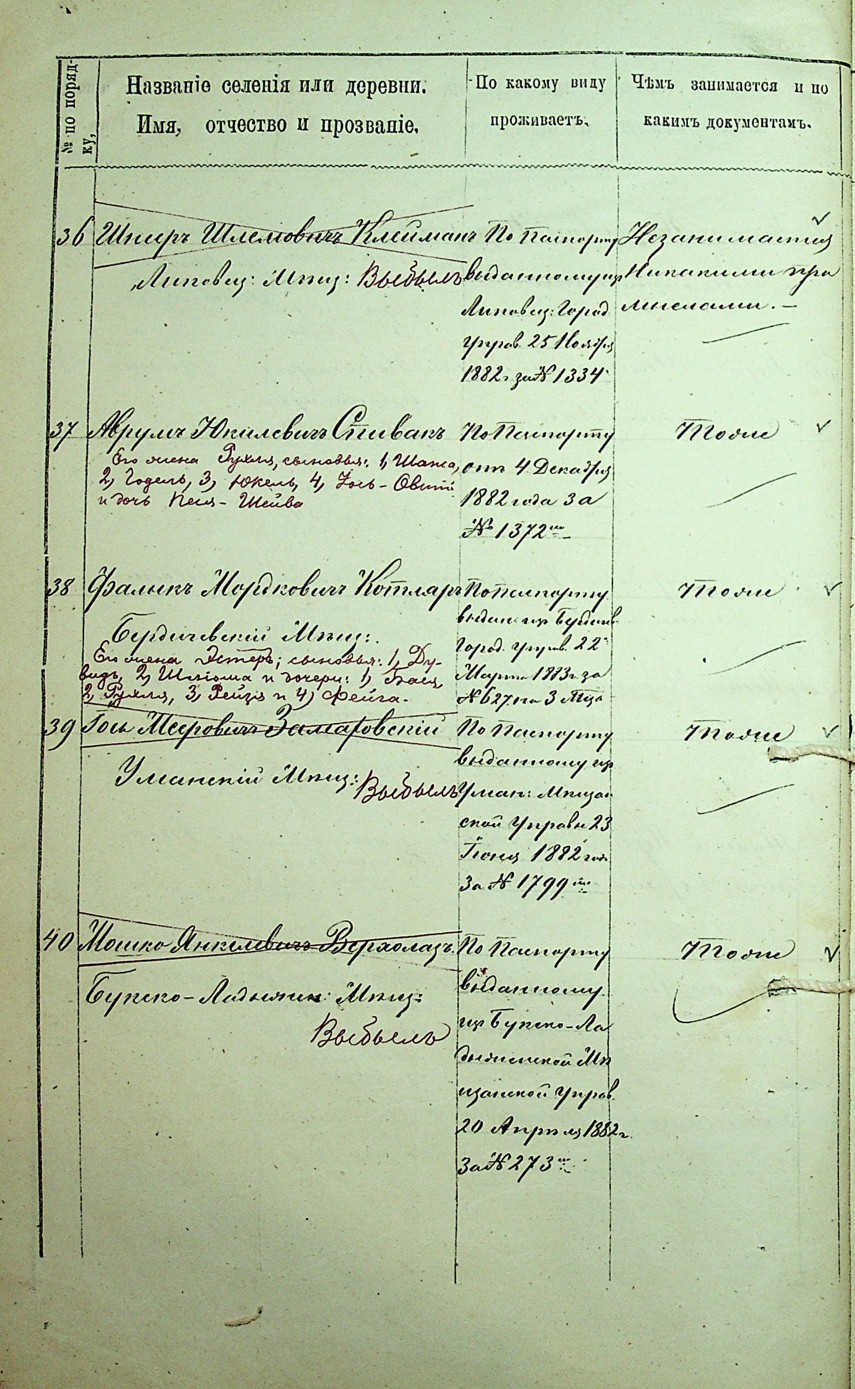 № по поряд-
ку,
Названіе селенія или деревни.
Имя, отчество и прозваніе.
По какому виду
проживаетъ.
Чѣмъ занимается и по
какимъ документамъ.
36
Шлемовичъ Клейманъ
Липовец: Мѣщ: Выбылъ
По Паспорту
выданному изъ
Липовец: Город
управ. 25 Ноября
1882 г. за № 1334
Незанимается
Никакими про
мыслами. —
37
Аврумъ Юкилевичъ Спивакъ
Его жена Рухля, сыновья: 1, Шапса,
2, Годель, 3, Юкель, 4,
и дочь Песя-Шейва
По Паспорту
отъ 4 Декабря
1882 года за
№ 1372
Тоже
38
Фалыкъ Мордковичъ Котляръ
Бердичевскій Мѣщ:.
Его жена Эстеръ; сыновья: 1, Ду-
видъ, 2, Шліома и дочери: 1, Бася,
2, Рухля, 3, Рейзя и 4, Фейга.
По паспорту
выдан изъ Бердичев
Город. управ. 22
Марта 1883 г. за
№ 627 на 3 Мѣс
Тоже
39
Гось Мееровичъ Замаровскій
Уманскій Мѣщ: Выбылъ
По Паспорту
выданному изъ
Уман: Мѣщан
ской Управы 23
Іюня 1882 год
За № 1799
Тоже
40
Мошко Янкелевичъ Верхолазъ
Букско-Ладыжин: Мѣщ:
Выбылъ
По Паспорту
выданному
изъ Букско-Ла
дыжинской Мѣ
щанской Управ.
20 Апрѣля 1882 г.
За № 273
Тоже